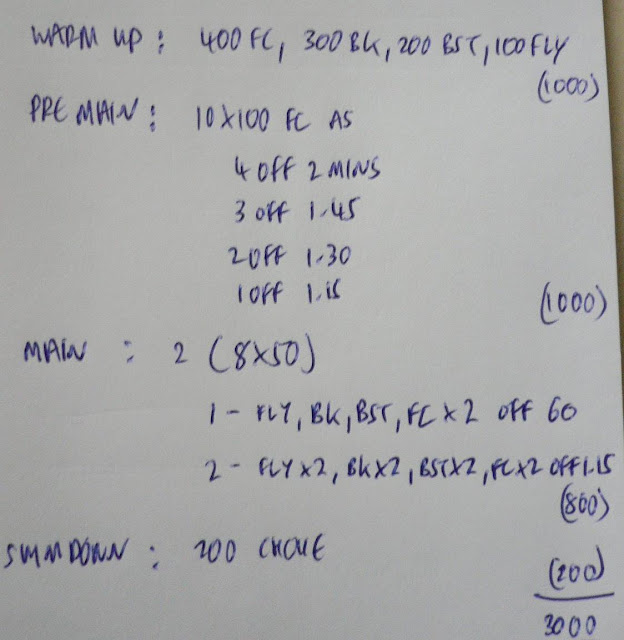 WARM UP : 400 FC, 300 BK, 200 BST, 100 FLY
(1000)
PRE MAIN : 10X100 FC AS
4 OFF 2 MINS
3 OFF 1.45
2 OFF 1.30
1 OFF 1.15
(1000)
MAIN : 2 (8X50)
1 - FLY, BK, BST, FC X 2 OFF 60
2 - FLY X2, BK X2, BST X2, FC X2 OFF 1.15
(800)
SWIMDOWN : 200 CHOICE
(200)
3000